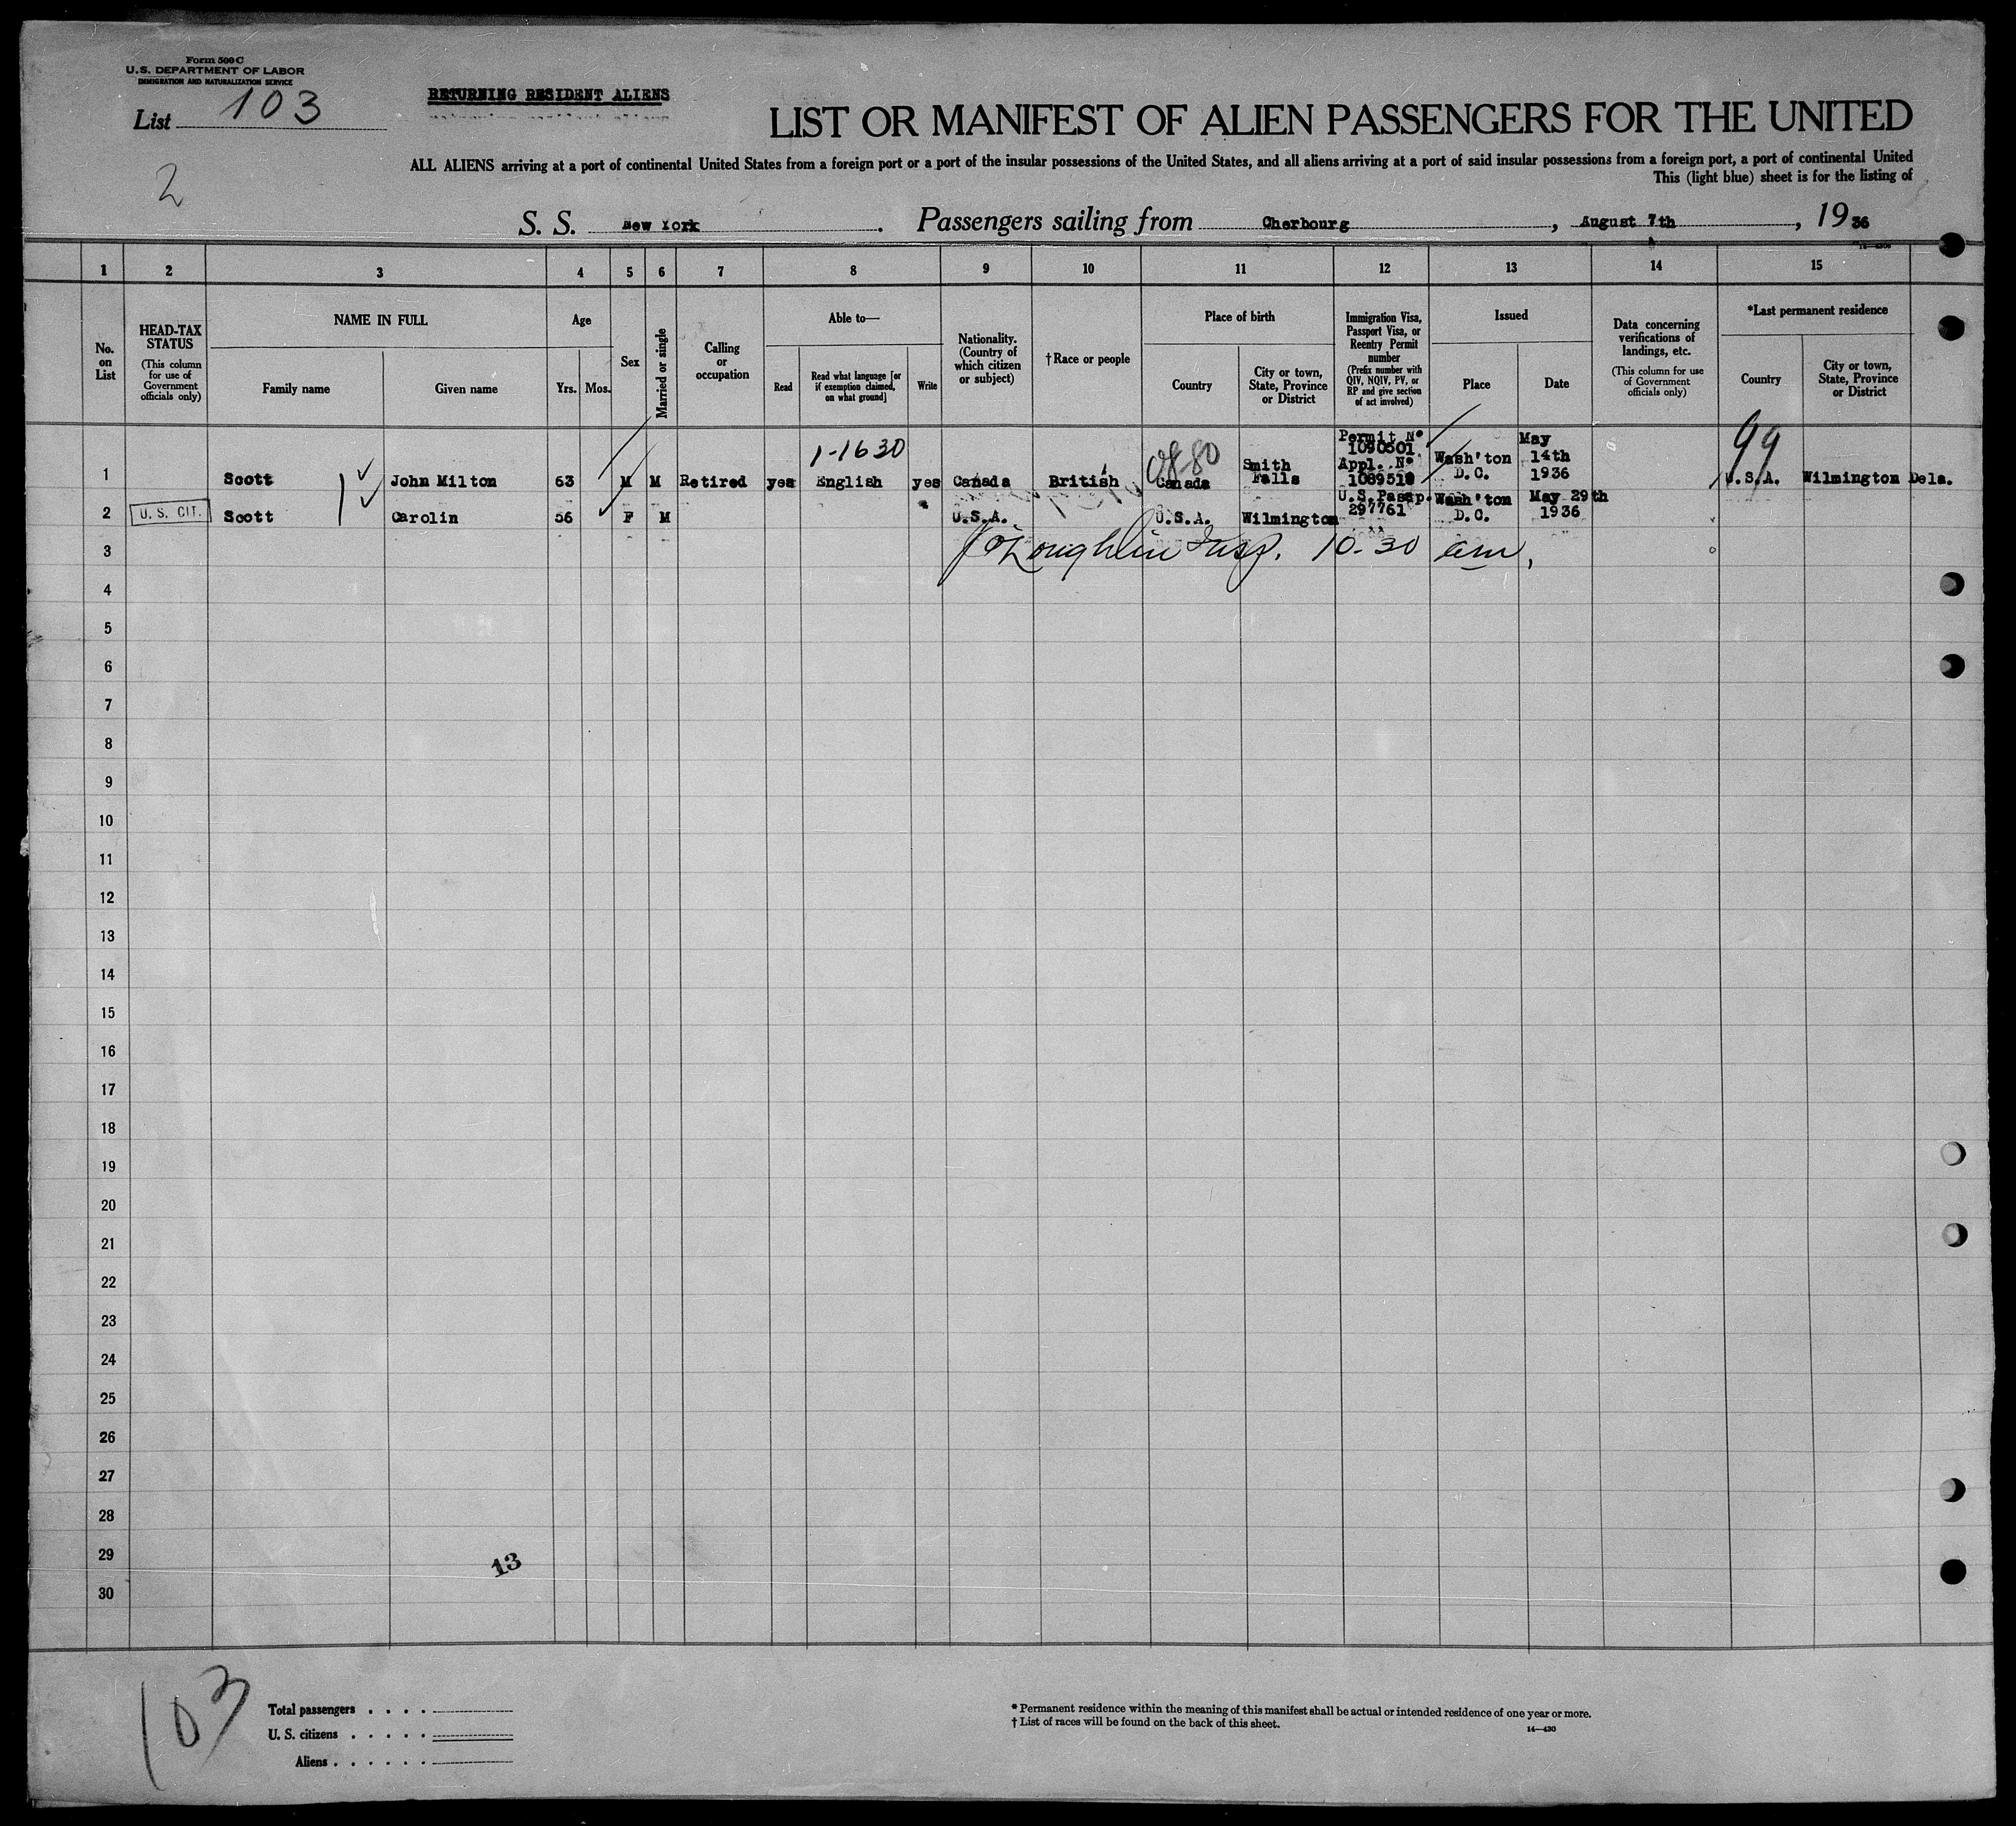 Form 500 C
U.S. DEPARTMENT OF LABOR
IMMIGRATION AND NATURALIZATION SERVICE
List 103
RETURNING RESIDENT ALIENS
LIST OR MANIFEST OF ALIEN PASSENGERS FOR THE UNITED
ALL ALIENS arriving at a port of continental United States from a foreign port or a port of the insular possessions of the United States, and all aliens arriving at a port of said insular possessions from a foreign port, a port of continental United
This (light blue) sheet is for the listing of
2
S. S. New York. Passengers sailing from Cherbourg, August 7th, 1936
1 2 3 4 5 6 7 8 9 10 11 12 13 14 15
No. on List
HEAD-TAX STATUS
(This column for use of Government officials only)
NAME IN FULL
Family name
Given name
Age
Yrs. Mos.
Sex
Married or single
Calling or occupation
Able to—
Read
Read what language [or if exemption claimed, on what ground]
Write
Nationality. (Country of which citizen or subject)
†Race or people
Place of birth
Country
City or town, State, Province or District
Immigration Visa, Passport Visa, or Reentry Permit number
(Prefix number with QIV, NQIV, PV, or RP and give section of act involved)
Issued
Place
Date
Data concerning verifications of landings, etc.
(This column for use of Government officials only)
*Last permanent residence
Country
City or town, State, Province or District
1-1630
99
1 Scott John Milton 63 M M Retired yes English yes Canada British Canada Smith Falls Permit No 1090501 Appl. No Wash'ton D.C. May 14th 1936 U.S.A. Wilmington Dela.
2 U. S. CIT. Scott Carolin 56 F M U.S.A. U.S.A. Wilmington U.S.Passp. 297761 Wash'ton D.C. May 29th 1936
3 Insp. 10-30 am,
4
5
6
7
8
9
10
11
12
13
14
15
16
17
18
19
20
21
22
23
24
25
26
27
28
29
13
30
103
Total passengers . . . .
U. S. citizens . . . . .
Aliens . . . . . .
* Permanent residence within the meaning of this manifest shall be actual or intended residence of one year or more.
† List of races will be found on the back of this sheet.
14—430